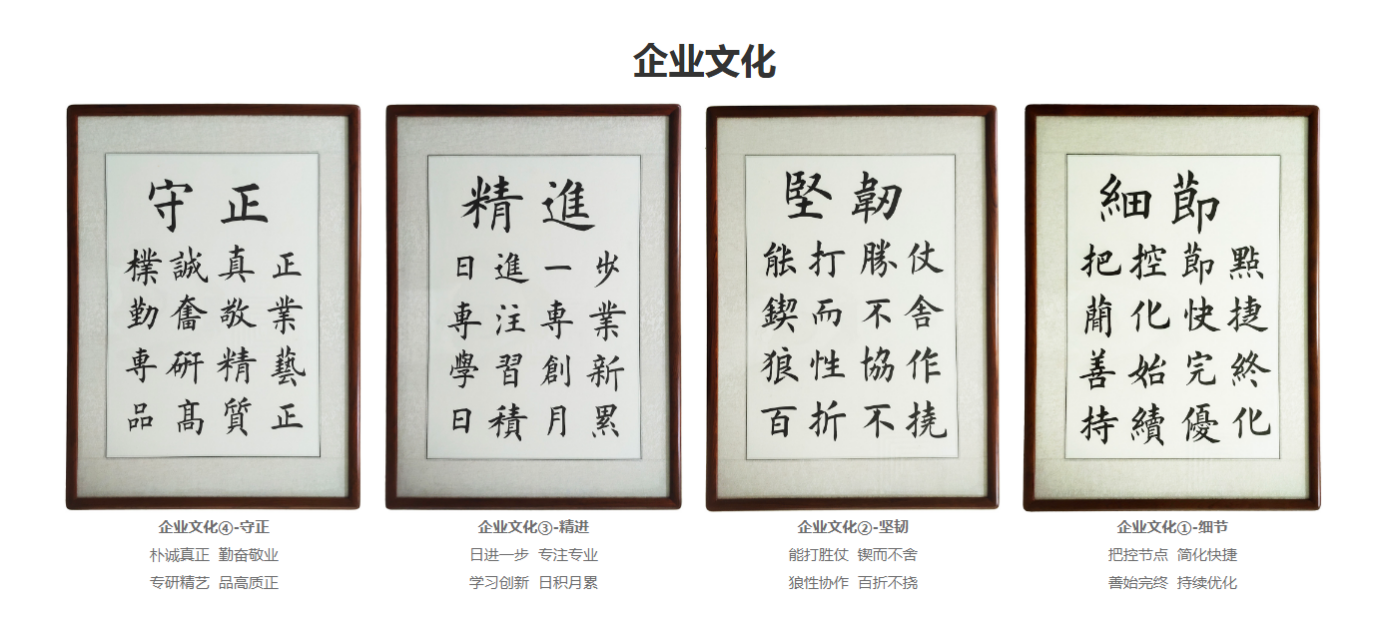 企业文化
守正
樸誠真正
勤奮敬業
専研精藝
品高質正
企业文化④-守正
朴诚真正 勤奋敬业
专研精艺 品高质正
精進
日進一步
専注専業
學習創新
日積月累
企业文化③-精进
日进一步 专注专业
学习创新 日积月累
堅韌
能打勝仗
鍥而不舍
狼性協作
百折不撓
企业文化②-坚韧
能打胜仗 锲而不舍
狼性协作 百折不挠
細節
把控節點
簡化快捷
善始完終
持續優化
企业文化①-细节
把控节点 简化快捷
善始完终 持续优化